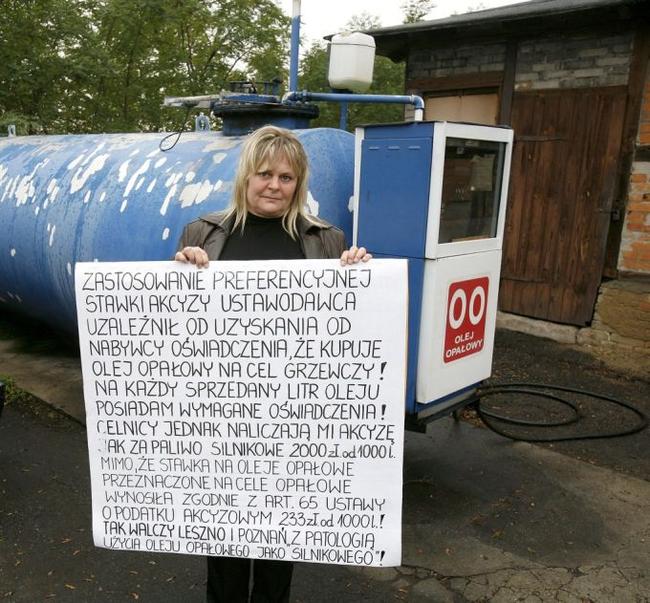 ZASTOSOWANIE PREFERENCYJNEJ
STAWKI AKCYZY USTAWODAWCA
UZALEŻNIŁ OD UZYSKANIA OD
NABYWCY OŚWIADCZENIA, ŻE KUPUJE
OLEJ OPAŁOWY NA CEL GRZEWCZY!
NA KAŻDY SPRZEDANY LITR OLEJU
POSIADAM WYMAGANE OŚWIADCZENIA!
CELNICY JEDNAK NALICZAJĄ MI AKCYZĘ
JAK ZA PALIWO SILNIKOWE 2000 zł. od 1000 l.
MIMO, ŻE STAWKA NA OLEJE OPAŁOWE
PRZEZNACZONE NA CELE OPAŁOWE
WYNOSIŁA ZGODNIE Z ART. 65 USTAWY
O PODATKU AKCYZOWYM 233 zł. od 1000 l.!
TAK WALCZY LESZNO I POZNAŃ, Z PATOLOGIĄ
UŻYCIA OLEJU OPAŁOWEGO "JAKO SILNIKOWEGO"!
OO
OLEJ
OPAŁOWY